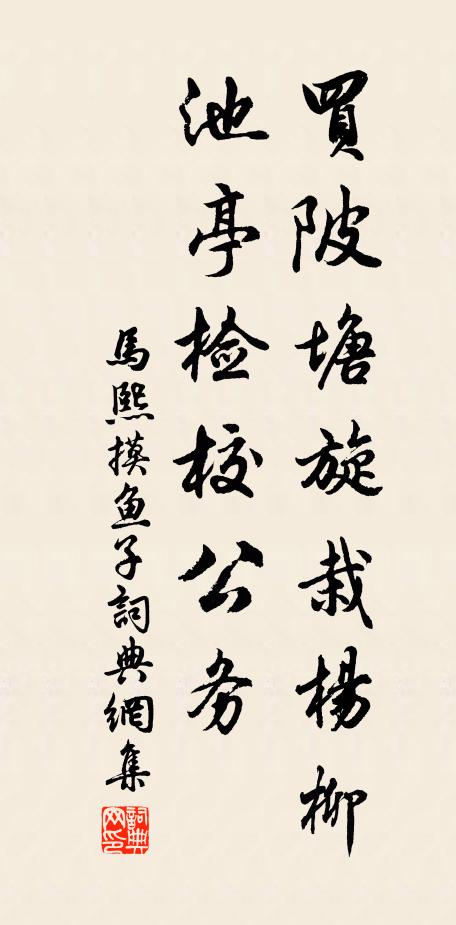 買陂塘旋栽楊柳
池亭检校公务
馬熙摸魚子詞典網集
詞典网印